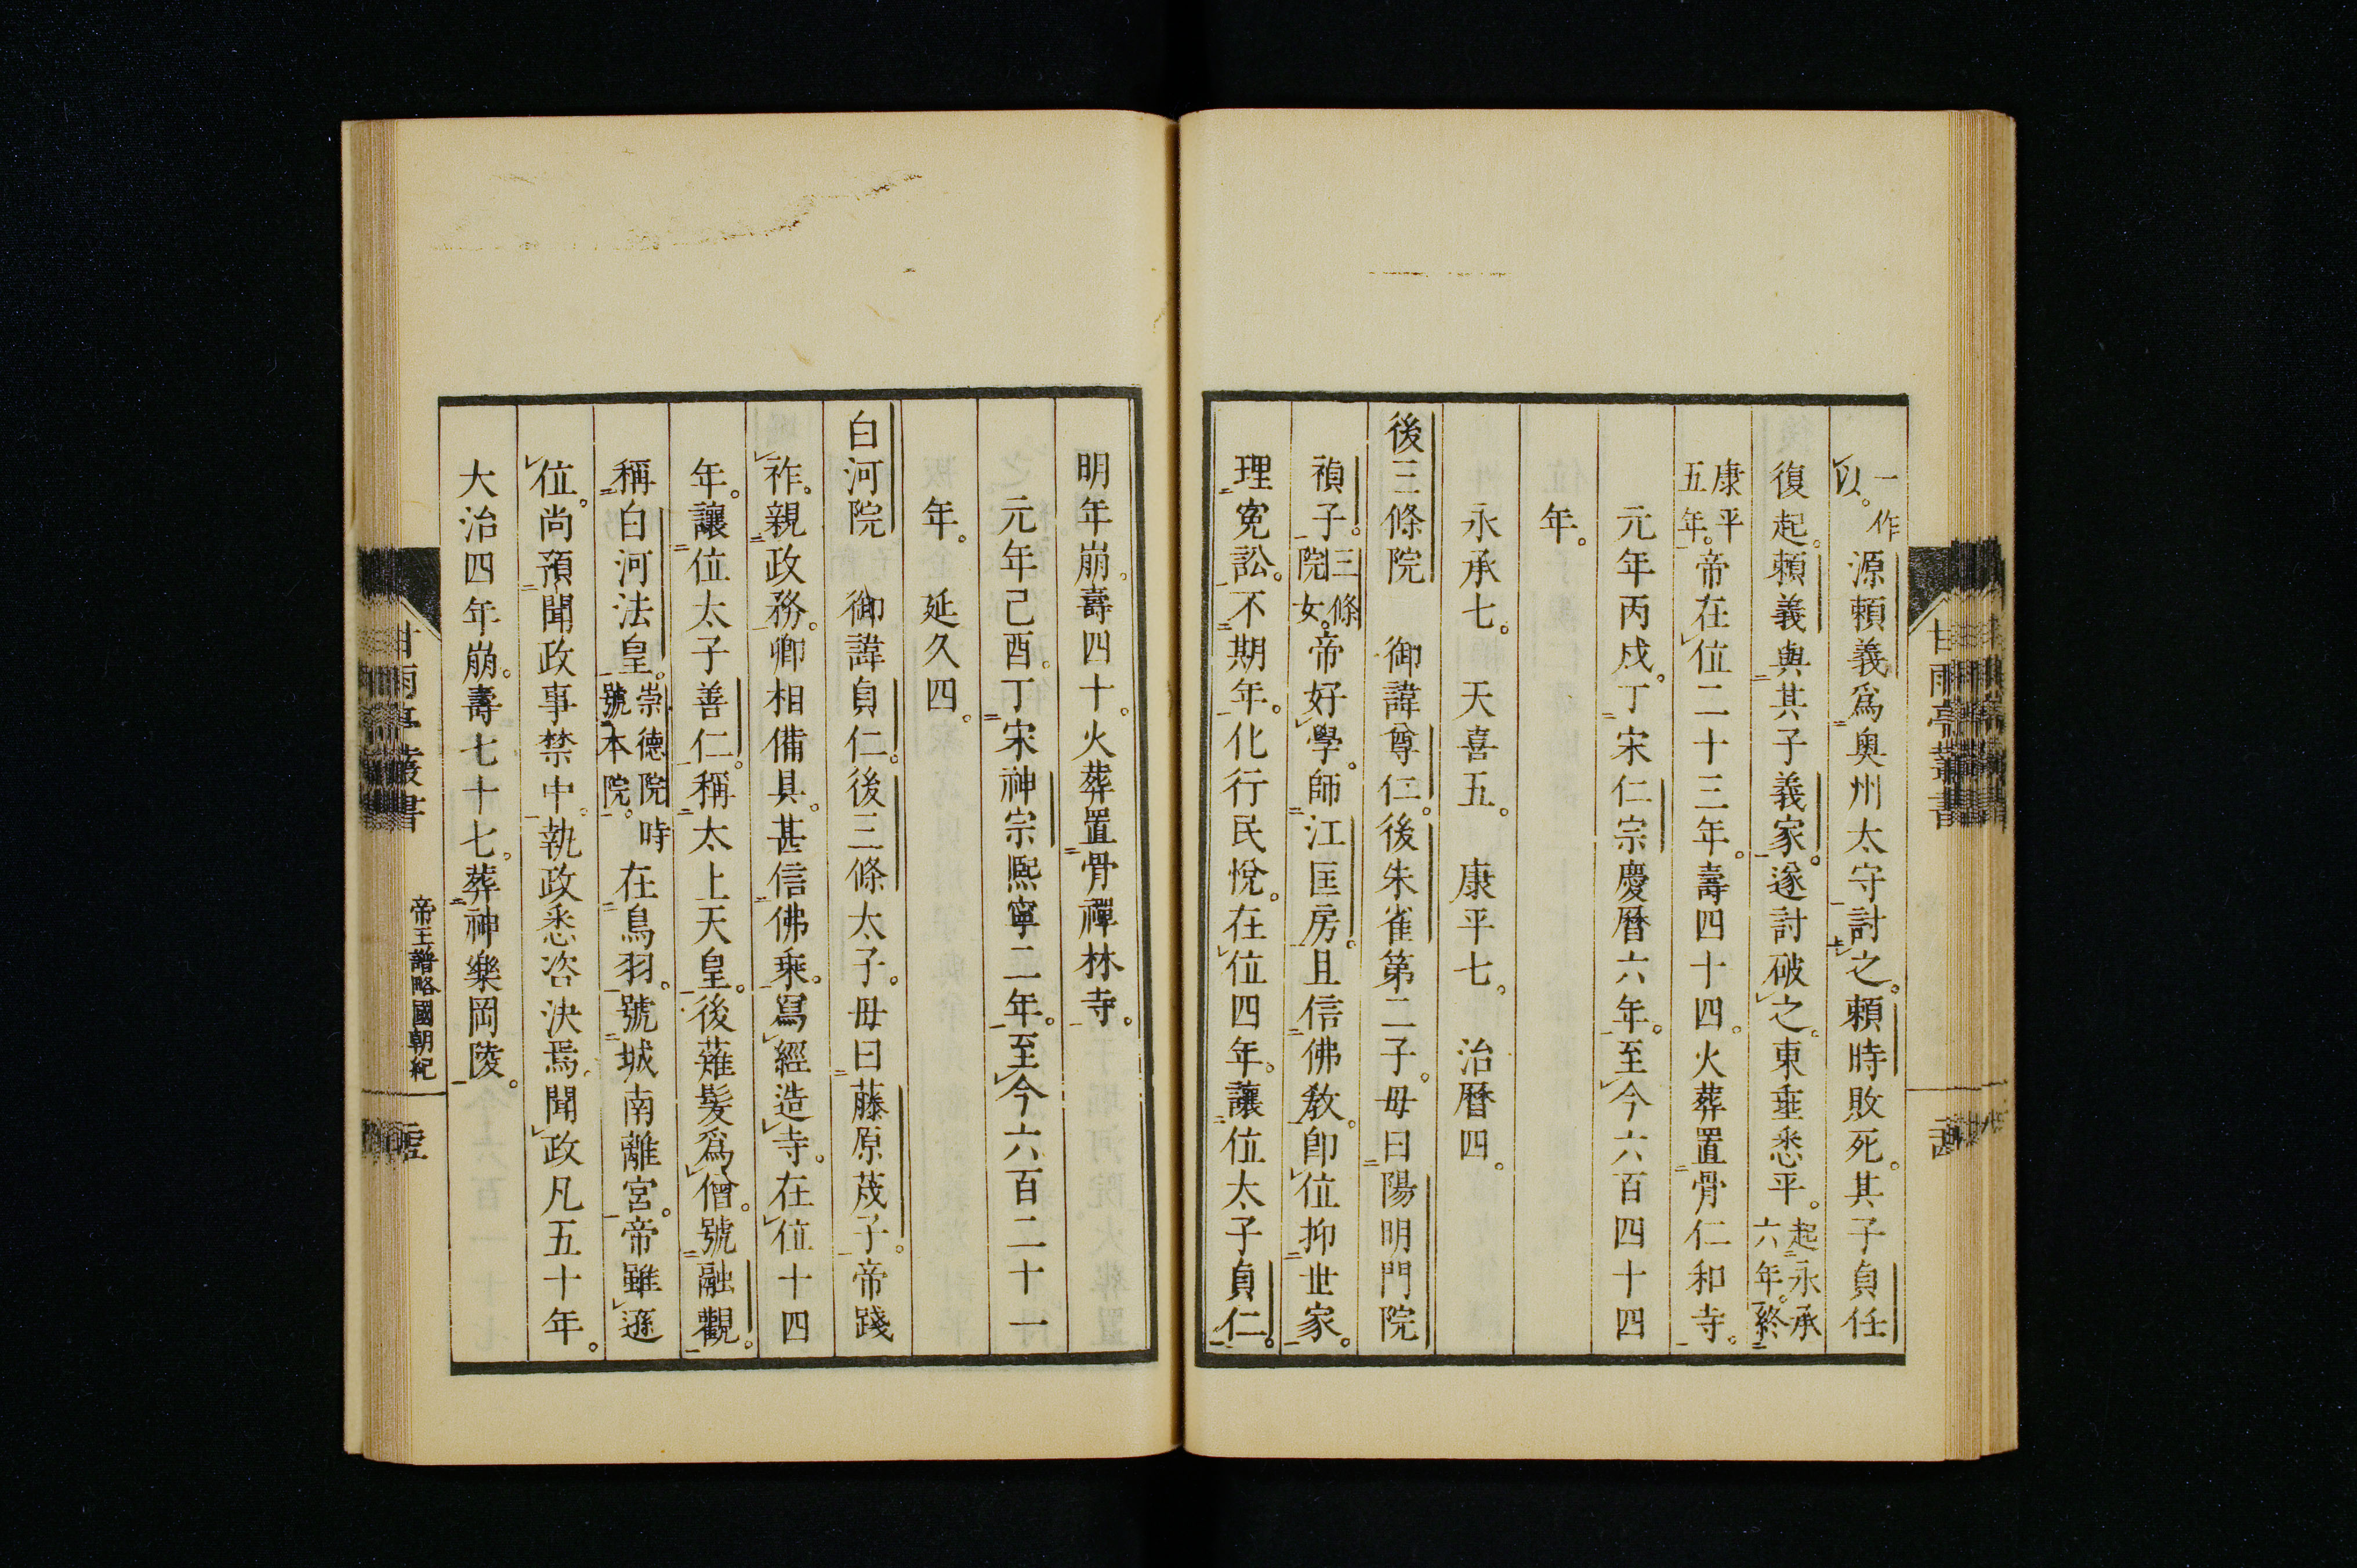 一作以。源頼義爲奥州太守討之。頼時敗死。其子貞任
復起。頼義與其子義家。遂討破之。東垂悉平。起永承六年。終
康平五年。帝在位二十三年。壽四十四。火葬置骨仁和寺。
元年丙戌。丁宋仁宗慶暦六年。至今六百四十四
年。
永承七。 天喜五。 康平七。 治暦四。
後三條院 御諱尊仁。後朱雀第二子。母曰陽明門院
禎子。三條院女。帝好學。師江匡房。且信佛教。即位抑世家。
理寃訟。不期年。化行民悅。在位四年。讓位太子貞仁。
明年崩。壽四十。火葬置骨禪林寺。
元年己酉。丁宋神宗熙寧二年。至今六百二十一
年。 延久四。
白河院 御諱貞仁。後三條太子。母曰藤原茂子。帝踐
祚。親政務。卿相備具。甚信佛乘。寫經造寺。在位十四
年。讓位太子善仁。稱太上天皇。後薙髮爲僧。號融觀。
稱白河法皇。崇德院時號本院。在鳥羽。號城南離宮。帝雖遜
位。尚預聞政事禁中。執政悉咨決焉。聞政凡五十年。
大治四年崩。壽七十七。葬神樂岡陵。
甘雨亭叢書
甘雨亭叢書
帝王譜略國朝紀